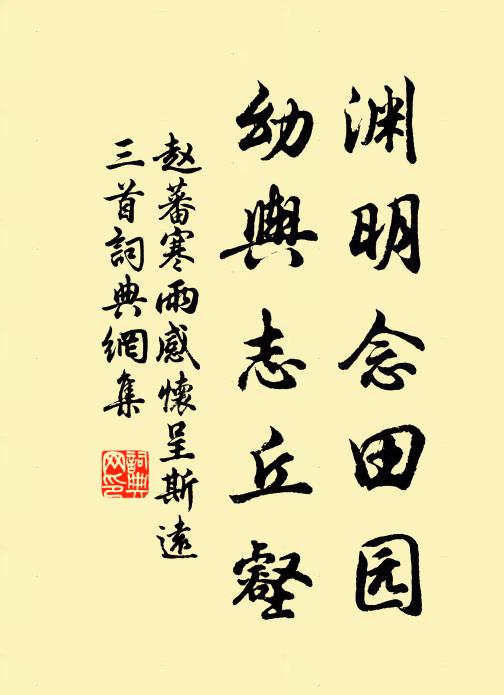 渊明念田园
幼舆志丘壑
赵蕃寒雨感怀呈斯远
三首词典网集
詞典
网印